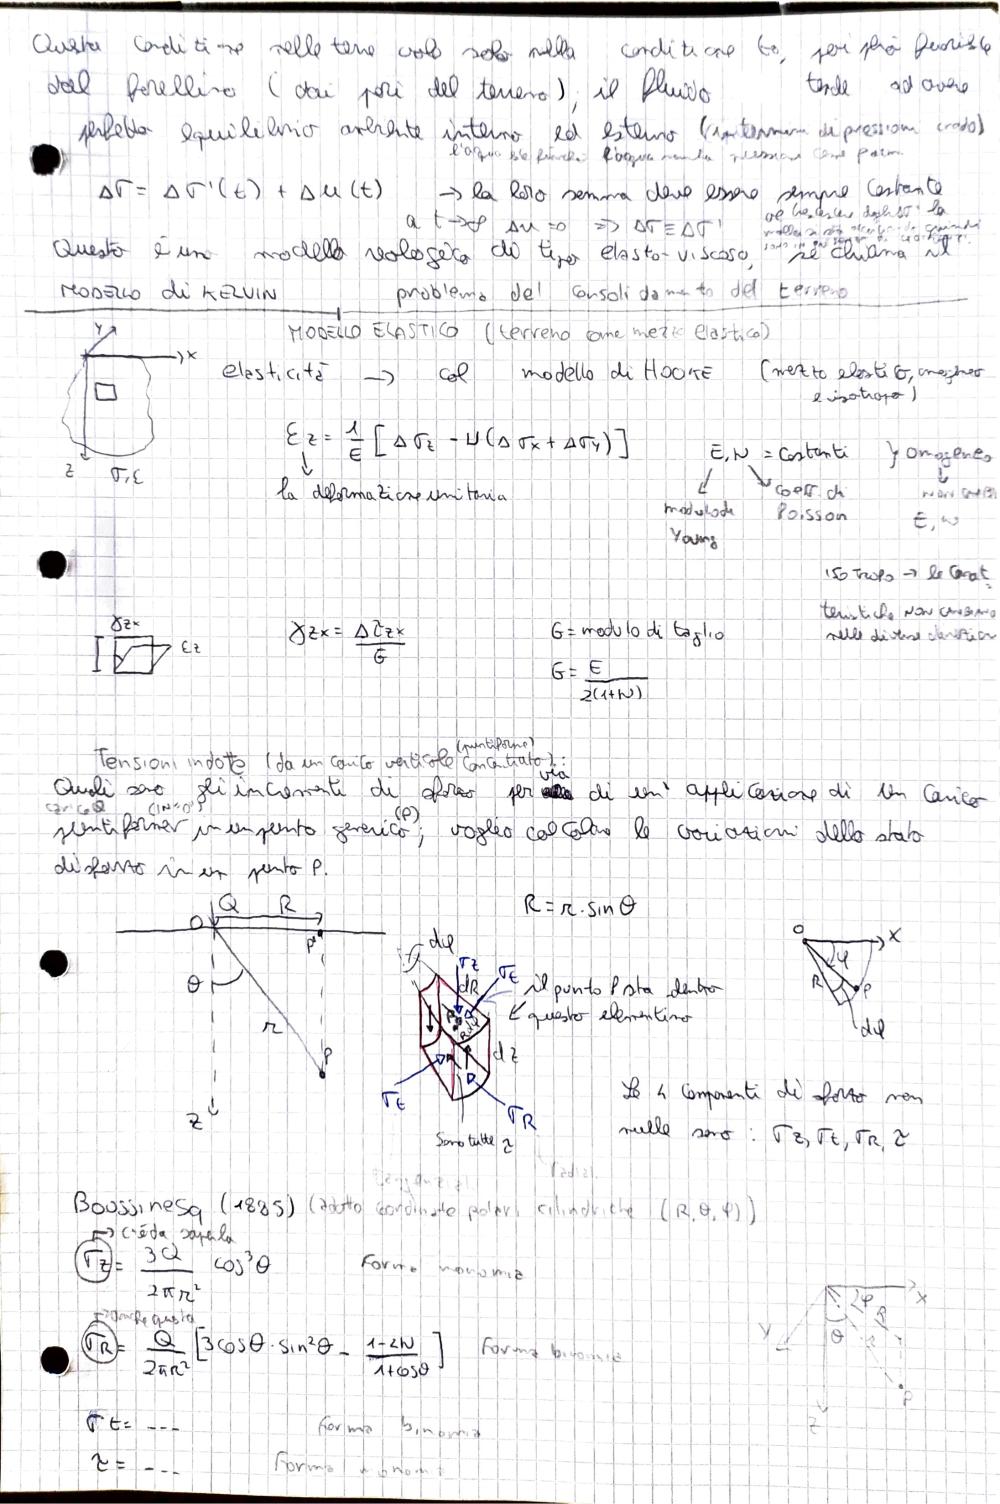 Questa condizione nelle terre vale solo nella condizione to, poi più fuorisce
dal forellino (dai pori del terreno), il fluido tende ad avere
perfetto equilibrio ambiente interno ed esterno (in termini di pressioni credo)
Δσ = Δσ'(t) + Δu(t) → la loro somma deve essere sempre costante
a t→∞ Δu=0 => Δσ≡Δσ'
Questo è un modello reologico di tipo elasto-viscoso, si chiama il
MODELLO di KELVIN problema del consolidamento del terreno
MODELLO ELASTICO (terreno come mezzo elastico)
Y
X
Z
σ,ε
elasticità → col modello di HOOKE (mezzo elastico, omogeneo
e isotropo)
εz = 1/E [Δσz - ν(Δσx + Δσy)]
la deformazione unitaria
E, ν = costanti } omogeneo
modulo di Young
coeff. di Poisson
NON CAMBI
E, ν
ISOTROPO → le carat
teristiche NON CAMBIANO
nelle diverse direzioni
γzx
εz
γzx = Δτzx/G
G = modulo di taglio
G = E/2(1+ν)
Tensioni indotte (da un carico verticale concentrato):
(puntiforme)
Quali sono gli incrementi di sforzo per via di un' applicazione di un carico
puntiforme in un punto generico (P), voglio calcolare le variazioni dello stato
di sforzo in un punto P.
O Q R
P'
θ
r
P
Z
R = r · sin θ
dφ
σz
dR
σt
dz
σt
σR
Sono tutte τ
il punto P sta dentro
questo elementino
O
X
φ
R
P
dφ
Le 4 componenti di sforzo non
nulle sono: σz, σt, σR, τ
Boussinesq (1885) (adotto coordinate polari cilindriche (R, θ, φ))
σz = 3Q/2πr² cos³θ Forma monomia
anche questa
σR = Q/2πR² [3cosθ · sin²θ - 1-2ν/1+cosθ] Forma binomia
σt = --- Forma binomia
τ = --- Forma monomi
X
Y
φ
R
θ
r
P
Z